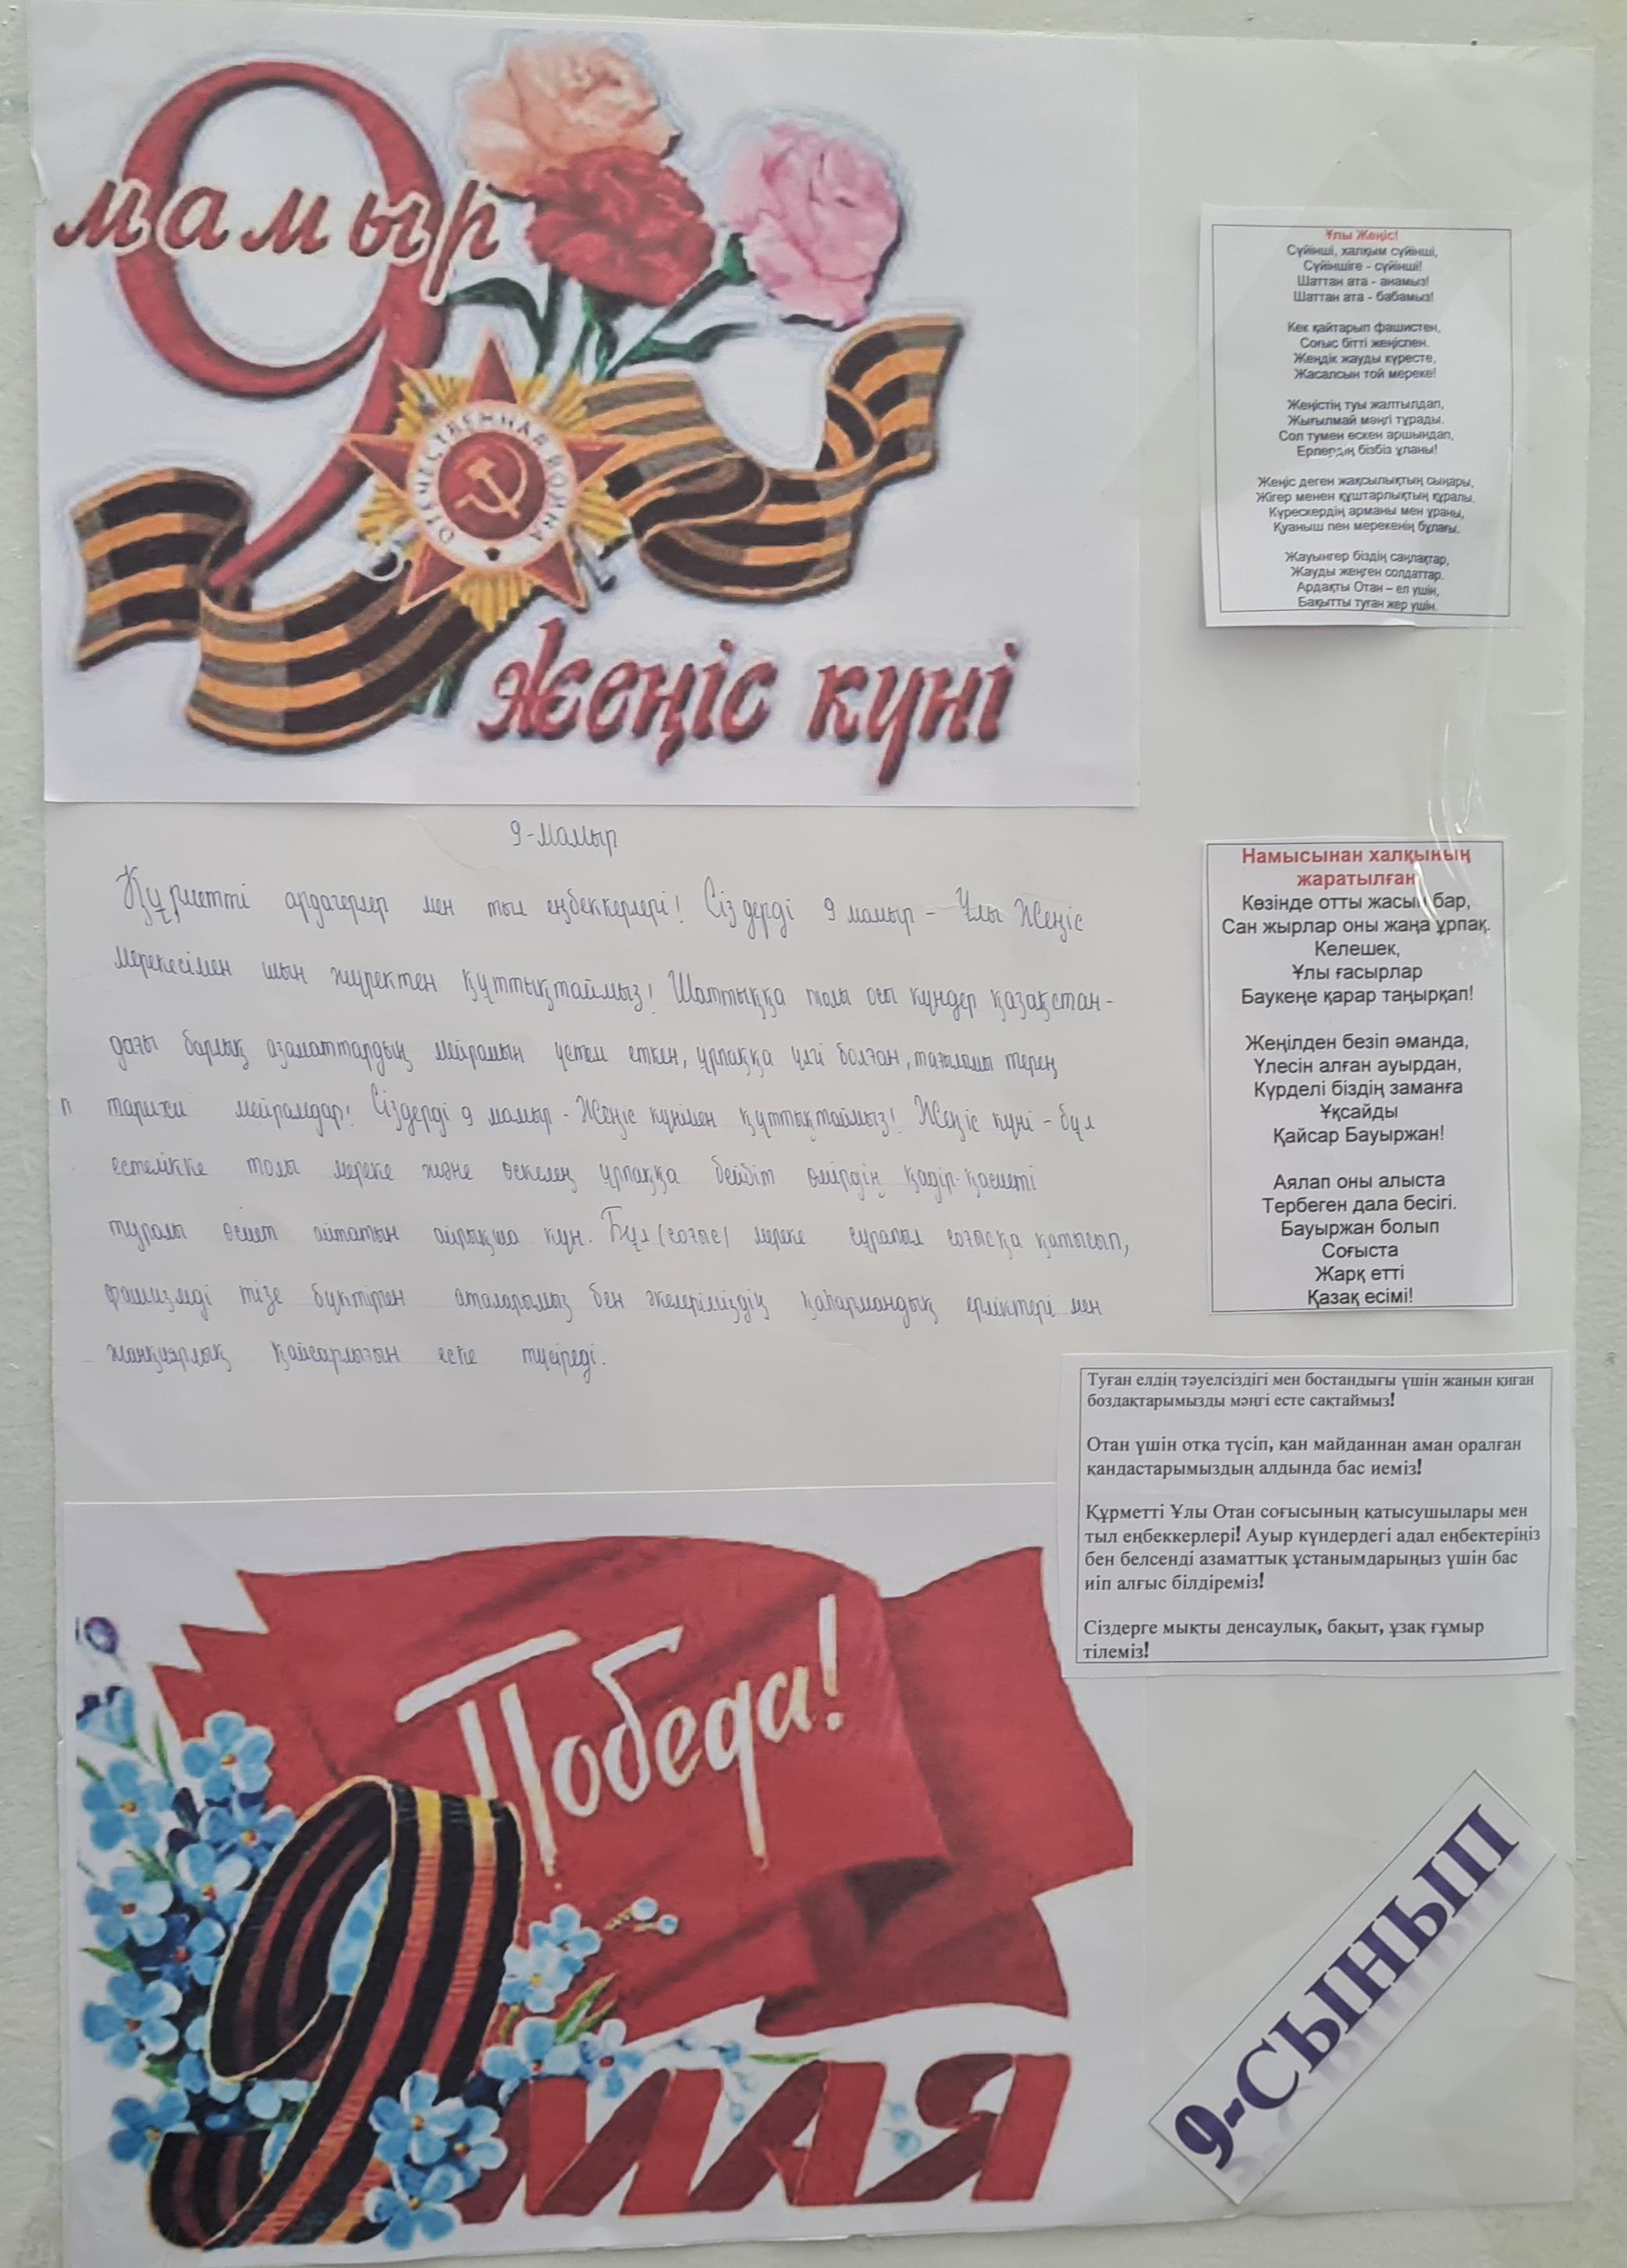 9
мамыр
ОТЕЧЕСТВЕННАЯ ВОЙНА
Жеңіс күні
9-мамыр
Құрметті ардагерлер мен тыл еңбеккерлері! Сіздерді 9 мамыр - Ұлы Жеңіс
мерекесімен шын жүректен құттықтаймыз! Шаттыққа толы осы күндер қазақстан-
дағы барлық азаматтардың мейрамын үстем еткен, ұрпаққа үлгі болған, тағылымы терең
п тарихи мейрамдар! Сіздерді 9 мамыр - Жеңіс күнімен құттықтаймыз! Жеңіс күні - бұл
естелікке толы мереке және өскелең ұрпаққа бейбіт өмірдің қадір-қасиеті
туралы өсиет айтатын айрықша күн. Бұл (соғыс) мереке сұрапыл соғысқа қатысып,
фашизмді тізе бүктірген аталарымыз бен әкелеріміздің қаһармандық ерліктері мен
жанқиярлық қайсарлығын еске түсіреді.
Ұлы Жеңіс!
Сүйінші, халқым сүйінші,
Сүйіншіге - сүйінші!
Шаттан ата - анамыз!
Шаттан ата - бабамыз!
Кек қайтарып фашистен,
Соғыс бітті жеңіспен.
Жеңдік жауды күресте,
Жасалсын той мереке!
Жеңістің туы жалтылдап,
Жығылмай мәңгі тұрады.
Сол тумен өскен аршындап,
Ерлердің бізбіз ұланы!
Жеңіс деген жақсылықтың сыңары,
Жігер менен құштарлықтың құралы.
Күрескердің арманы мен ұраны,
Қуаныш пен мерекенің бұлағы.
Жауынгер біздің саңлақтар,
Жауды жеңген солдаттар.
Ардақты Отан – ел үшін,
Бақытты туған жер үшін.
Намысынан халқының
жаратылған
Көзінде отты жасын бар,
Сан жырлар оны жаңа ұрпақ.
Келешек,
Ұлы ғасырлар
Баукеңе қарар таңырқап!
Жеңілден безіп әманда,
Үлесін алған ауырдан,
Күрделі біздің заманға
Ұқсайды
Қайсар Бауыржан!
Аялап оны алыста
Тербеген дала бесігі.
Бауыржан болып
Соғыста
Жарқ етті
Қазақ есімі!
Туған елдің тәуелсіздігі мен бостандығы үшін жанын қиған
боздақтарымызды мәңгі есте сақтаймыз!
Отан үшін отқа түсіп, қан майданнан аман оралған
қандастарымыздың алдында бас иеміз!
Құрметті Ұлы Отан соғысының қатысушылары мен
тыл еңбеккерлері! Ауыр күндердегі адал еңбектеріңіз
бен белсенді азаматтық ұстанымдарыңыз үшін бас
иіп алғыс білдіреміз!
Сіздерге мықты денсаулық, бақыт, ұзақ ғұмыр
тілеміз!
Победа!
9 МАЯ
9-СЫНЫП